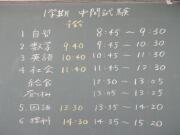 1学期 中間試験
予鈴
1 自習 8:45 〜 9:30
2 数学 9:40 9:45 〜 10:30
3 英語 10:40 10:45 〜 11:30
4 社会 11:40 11:45 〜 12:30
給食 12:30 〜 13:05
13:05 〜 13:25
5 国語 13:30 13:35 〜 14:20
6 理科 14:30 14:35 〜 15:20